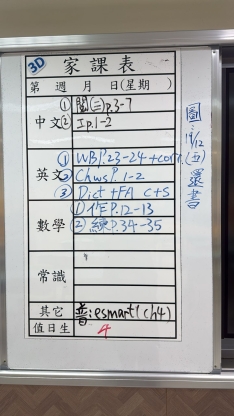 3D
家課表
第 週 月 日(星期 )
中文
① 閱(三)p.3-7
② 工p.1-2
英文
① WB P.23-24 + corr.(五)
② Chws P.1-2
③ Dict + FA C+S
數學
① 作P.12-13
② 練P.34-35
常識
其它
普:esmart(ch4)
值日生
4
圖:
19/12
還書